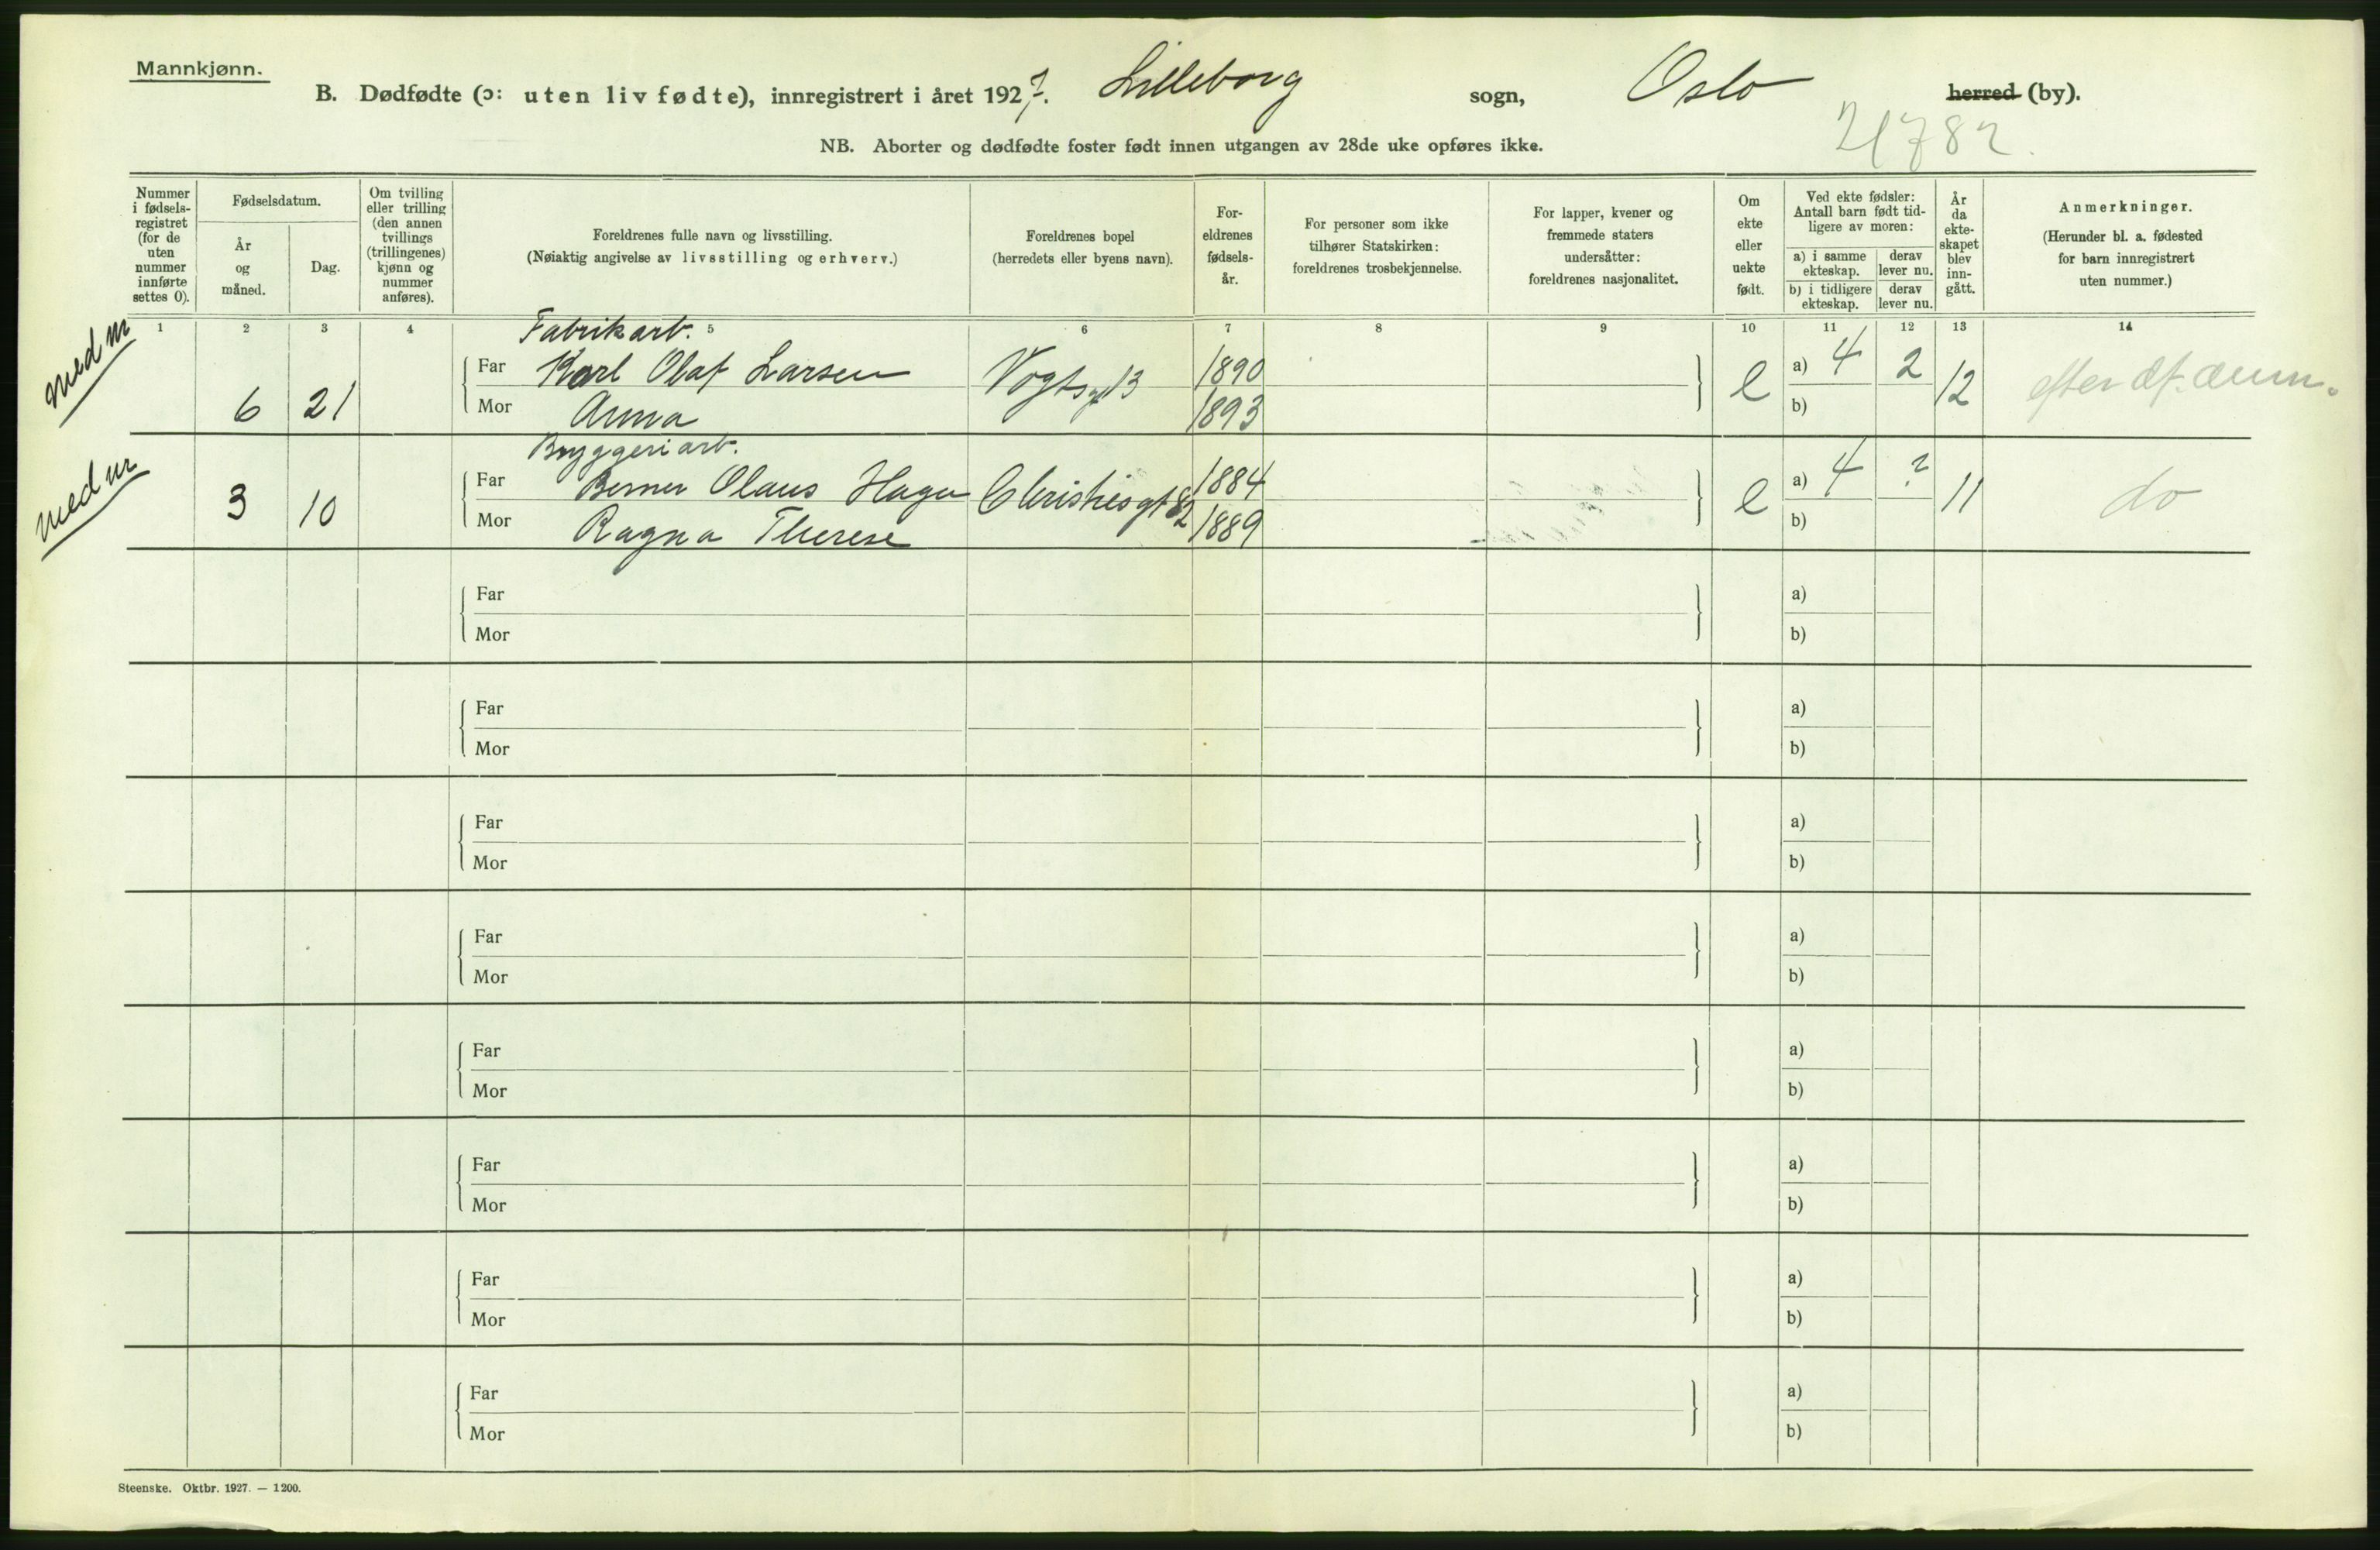 Mannkjønn.
B. Dødfødte (ɔ: uten liv fødte), innregistrert i året 1927. Lilleborg sogn, Oslo herred (by).
21782.
NB. Aborter og dødfødte foster født innen utgangen av 28de uke opføres ikke.
Nummer i fødsels-registret (for de uten nummer innførte settes 0).
Fødselsdatum.
År og måned.
Dag.
Om tvilling eller trilling (den annen tvillings (trillingenes) kjønn og nummer anføres).
Foreldrenes fulle navn og livsstilling.
(Nøiaktig angivelse av livsstilling og erhverv.)
Foreldrenes bopel
(herredets eller byens navn).
For-eldrenes fødsels-år.
For personer som ikke tilhører Statskirken: foreldrenes trosbekjennelse.
For lapper, kvener og fremmede staters undersåtter: foreldrenes nasjonalitet.
Om ekte eller uekte født.
Ved ekte fødsler: Antall barn født tid-ligere av moren:
a) i samme ekteskap.
derav lever nu.
b) i tidligere ekteskap.
derav lever nu.
År da ekte-skapet blev inn-gått.
Anmerkninger.
(Herunder bl. a. fødested for barn innregistrert uten nummer.)
1 2 3 4 5 6 7 8 9 10 11 12 13 14
med m
Fabrikarb.
Far Karl Olaf Larsen Vogtsgt 13 1890 a) 4 2
6 21 e 12 efter df. anm.
Mor Anna 1893 b)
med m
Bryggeriarb.
Far Berner Olaus Hagen Christiesgt 32 1884 a) 4 ?
3 10 e 11 do
Mor Ragna Therese 1889 b)
Far a)
Mor b)
Far a)
Mor b)
Far a)
Mor b)
Far a)
Mor b)
Far a)
Mor b)
Far a)
Mor b)
Far a)
Mor b)
Far a)
Mor b)
Steenske. Oktbr. 1927. — 1200.